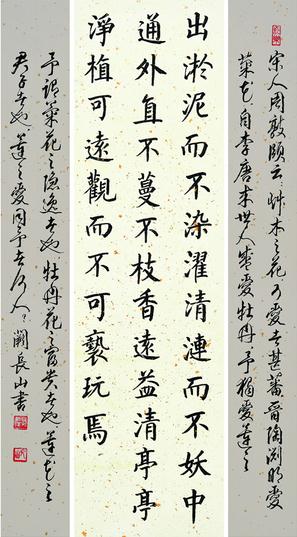 宋人周敦頤云艸木之花可愛者甚蕃晉陶渊明愛
菊花自李唐来世人盛愛牡丹予獨愛蓮之
出淤泥而不染濯清漣而不妖中
通外直不蔓不枝香遠益清亭亭
淨植可遠觀而不可褻玩焉
予謂菊花之隐逸者也牡丹花之富贵者也蓮花之
君子者也蓮之愛同予者何人闕長山書